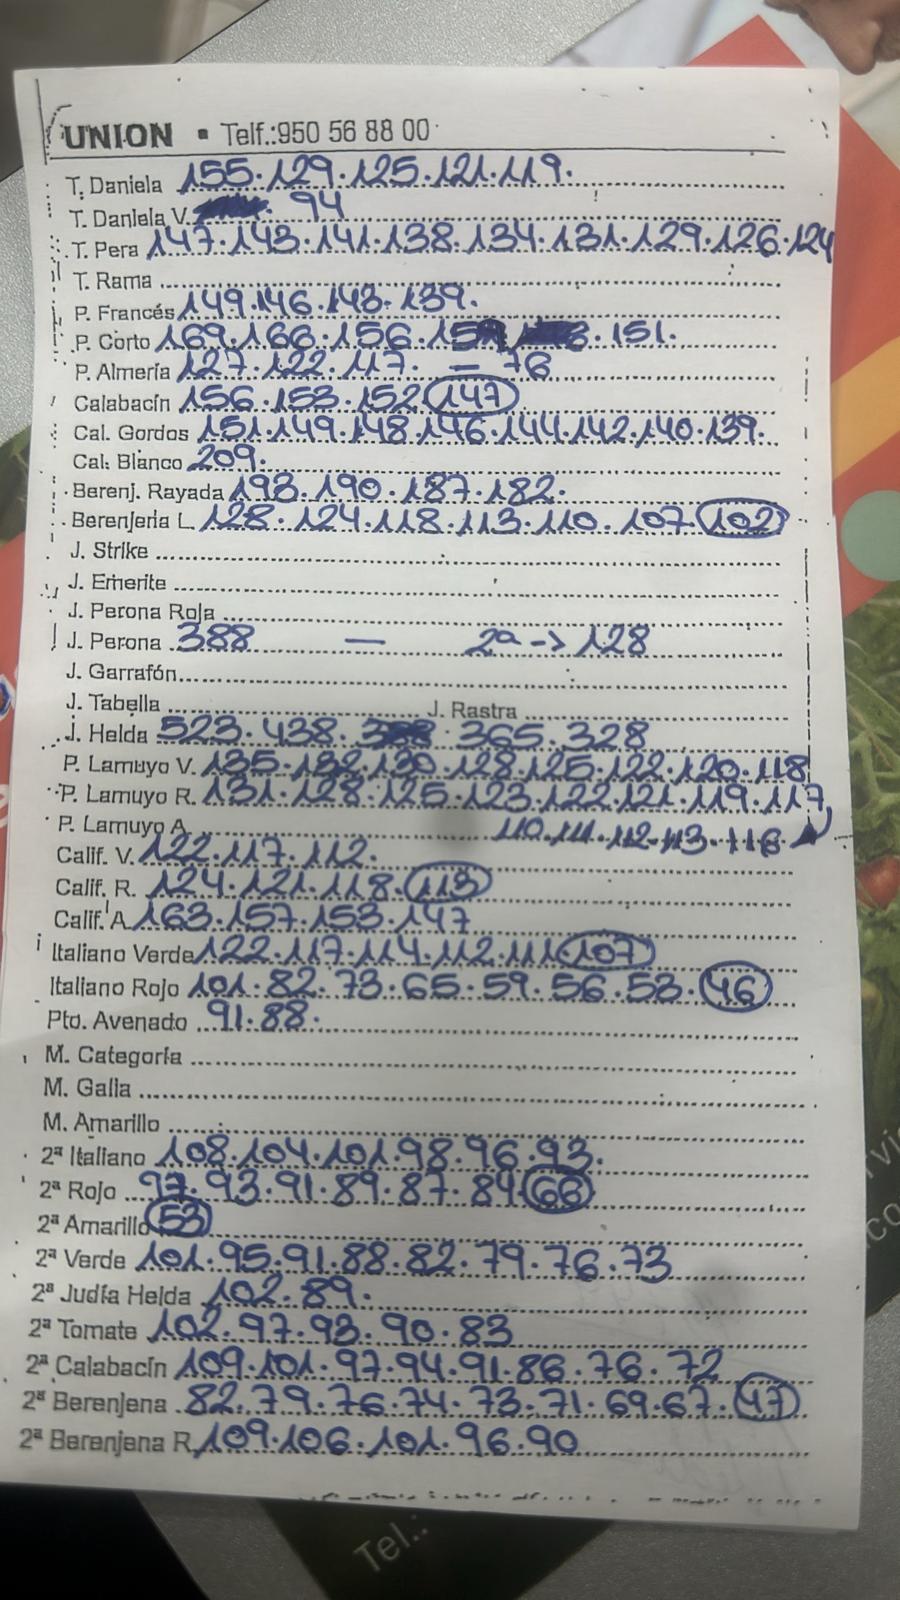 UNION • Telf.:950 56 88 00
T. Daniela 155.129.125.121.119.
T. Daniela V. 94
T. Pera 147.143.141.138.134.131.129.126.124
T. Rama
P. Francés 149.146.143.139.
P. Corto 169.166.156.151.
P. Almería 127.122.117. — 76
Calabacín 156.153.152 147
Cal. Gordos 151.149.148.146.144.142.140.139.
Cal. Blanco 209.
Berenj. Rayada 193.190.187.182.
Berenjena L. 128.124.118.113.110.107 102
J. Strike
J. Emerite
J. Perona Roja
J. Perona 388 — 2ª -> 128
J. Garrafón
J. Tabella J. Rastra
J. Helda 523.438. 365.328
P. Lamuyo V. 135.132.130.128.125.122.120.118
P. Lamuyo R. 131.128.125.123.122.121.119.117
P. Lamuyo A. 110.111.112.113.116
Calif. V. 122.117.112.
Calif. R. 124.121.118.113
Calif. A. 163.157.153.147
Italiano Verde 122.117.114.112.111 107
Italiano Rojo 101.82.73.65.59.56.53.46
Pto. Avenado 91.88.
M. Categoría
M. Galia
M. Amarillo
2ª Italiano 108.104.101.98.96.93.
2ª Rojo 97.93.91.89.87.84 66
2ª Amarillo 53
2ª Verde 101.95.91.88.82.79.76.73
2ª Judía Helda 102.89.
2ª Tomate 102.97.93.90.83
2ª Calabacín 109.101.97.94.91.86.76.72
2ª Berenjena 82.79.76.74.73.71.69.67.47
2ª Berenjena R. 109.106.101.96.90
Tel.: